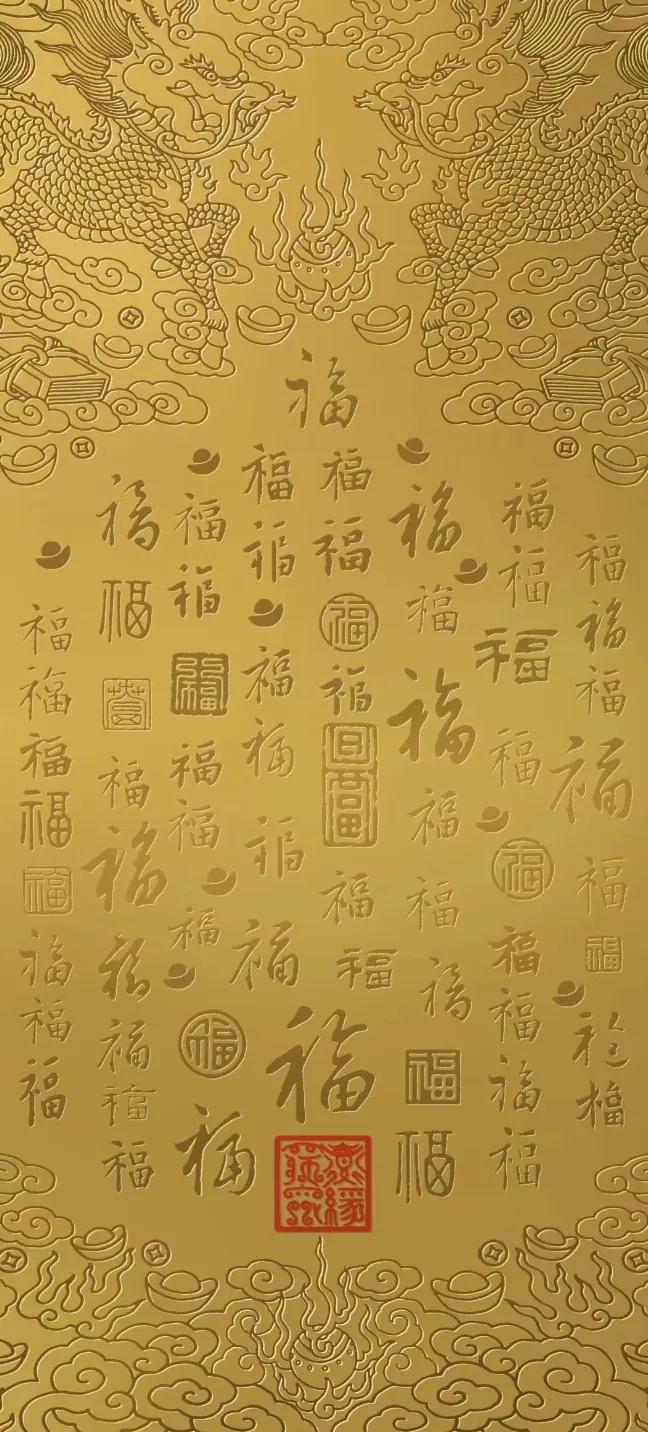 福
福福福福福福福福
福福福福福福福福福
福福福福福福福福
福福福福福福
福福福福福福
福福福福福福福福
福福福福福福福福
福福福福福福福福
福